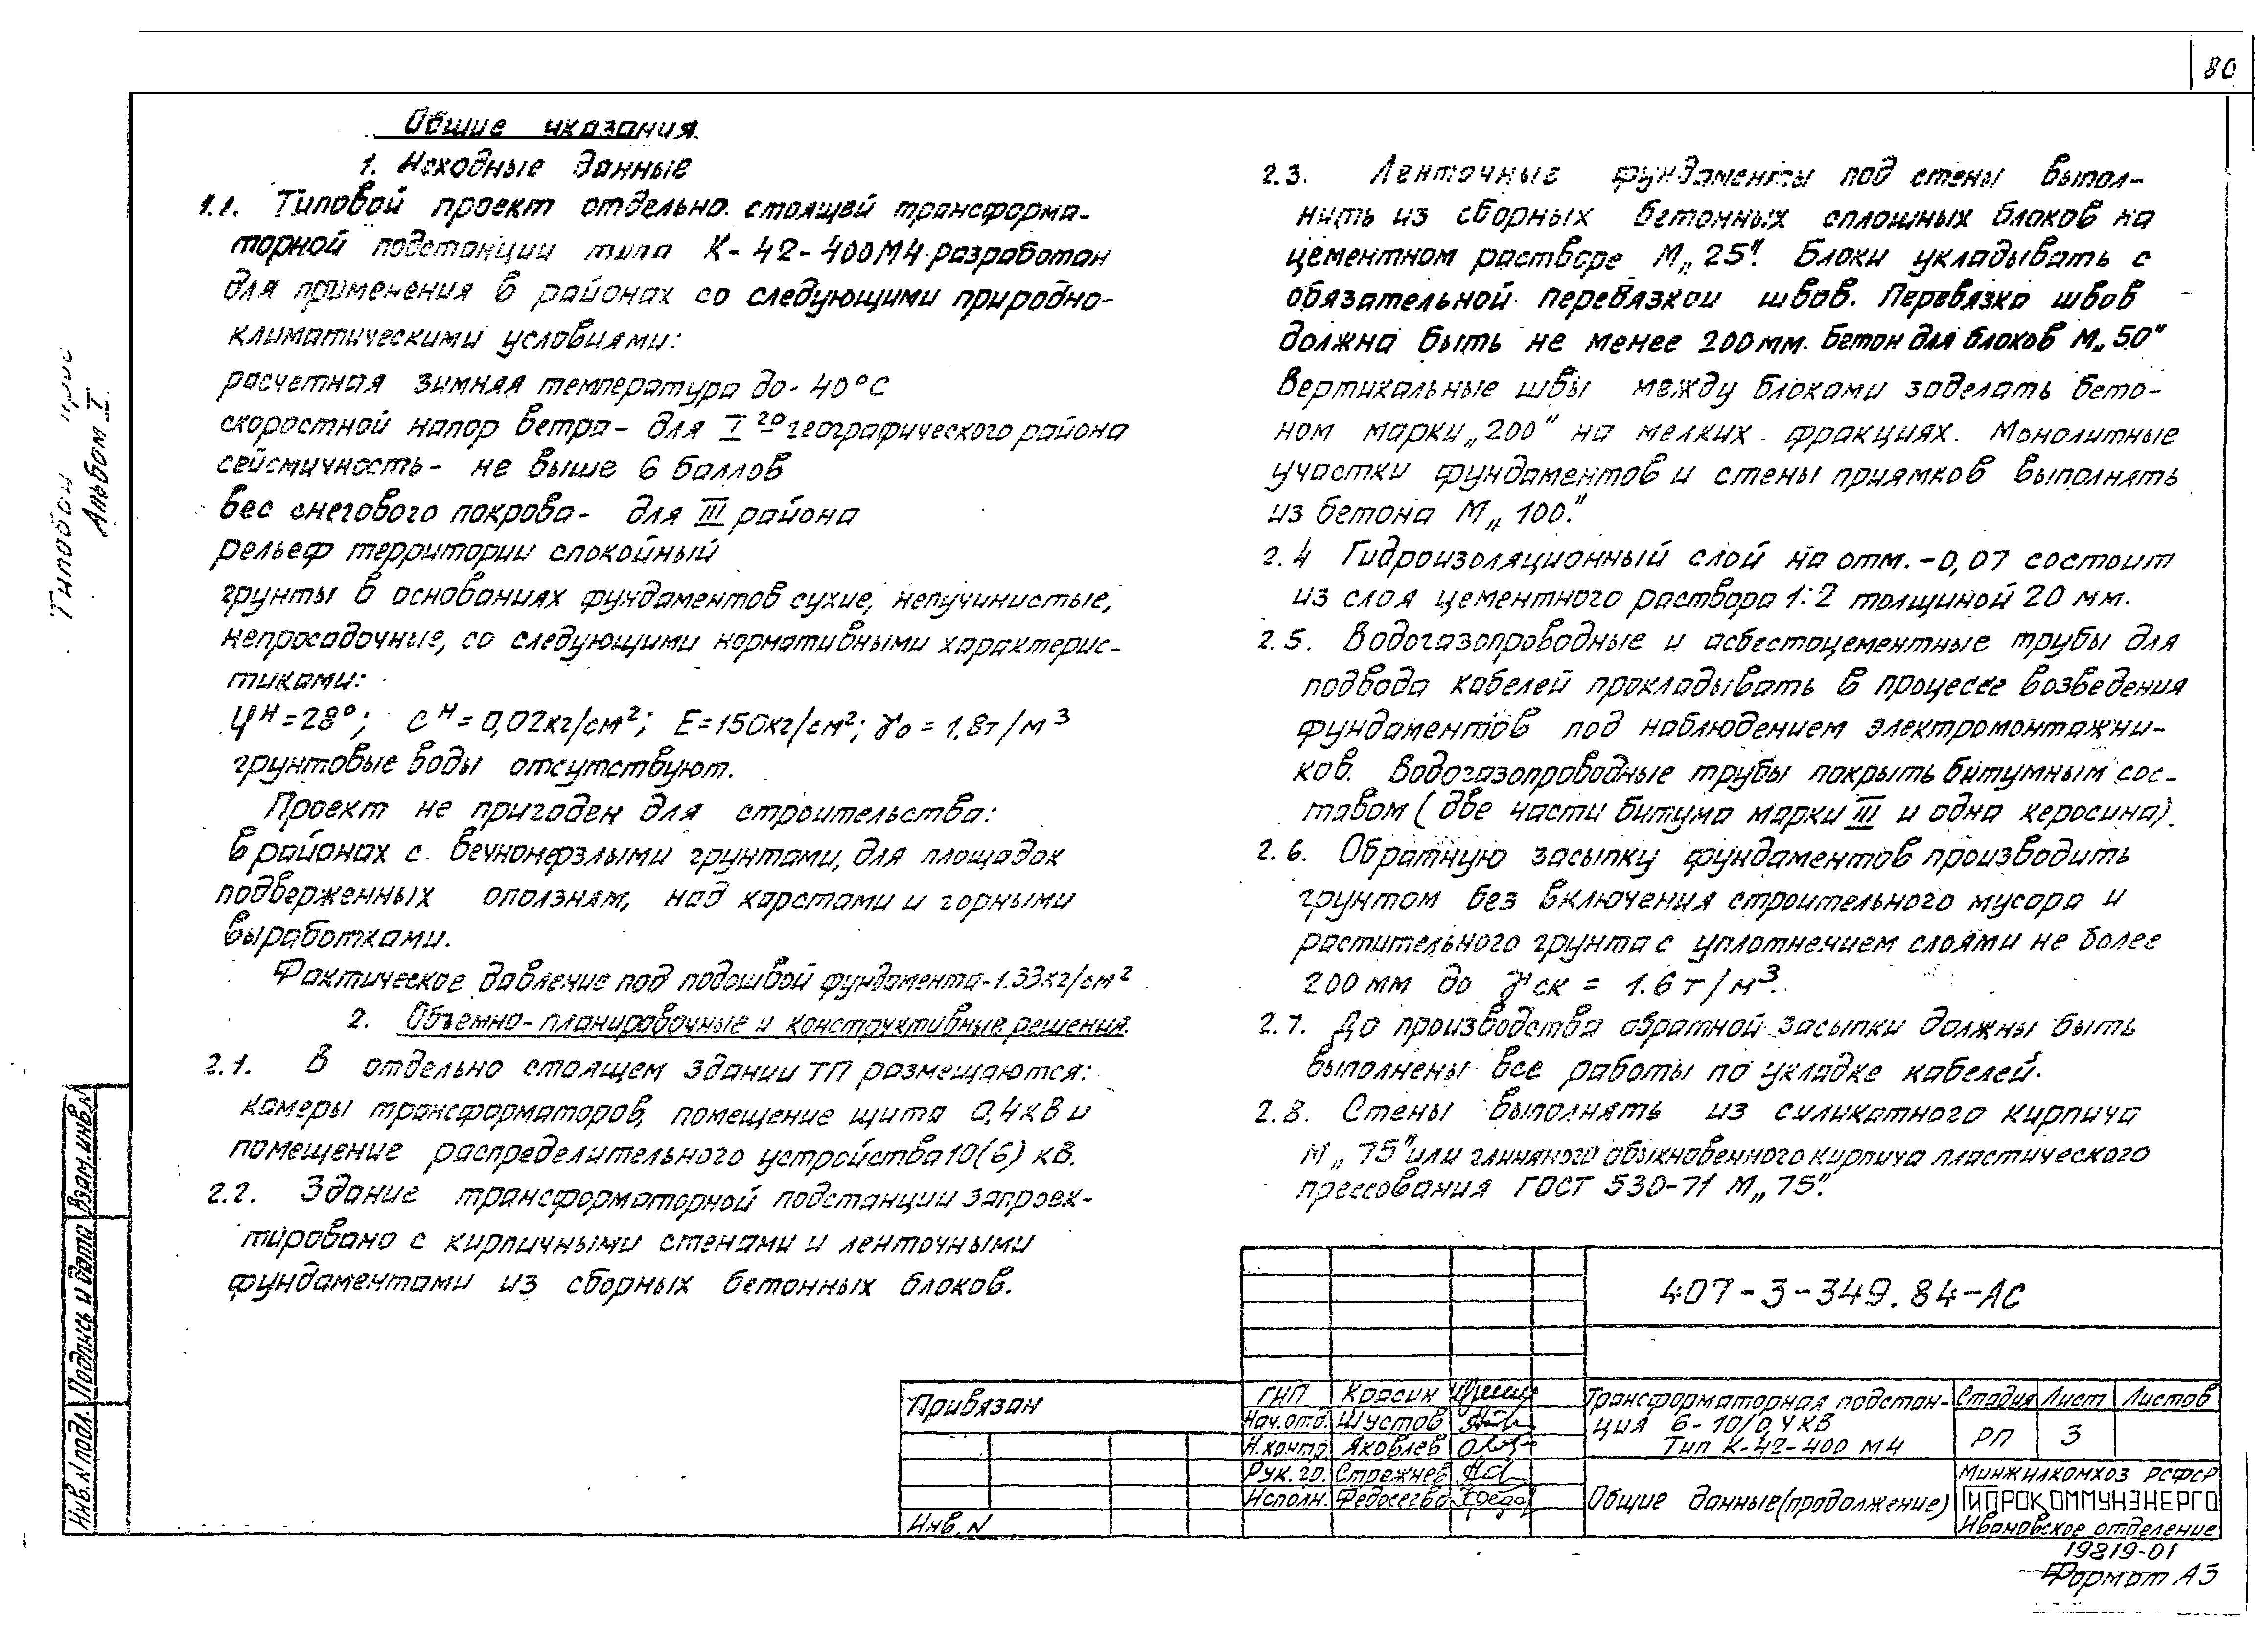 80
Общие указания.
1. Исходные данные
1.1. Типовой проект отдельно стоящей трансформа-
торной подстанции типа К-42-400М4 разработан
для применения в районах со следующими природно-
климатическими условиями:
расчетная зимняя температура до -40°С
скоростной напор ветра - для I го географического района
сейсмичность - не выше 6 баллов
вес снегового покрова - для III района
рельеф территории спокойный
грунты в основаниях фундаментов сухие, непучинистые,
непросадочные, со следующими нормативными характерис-
тиками:
φН=28°; сН=0,02кг/см²; Е=150кг/см²; γо=1.8т/м³
грунтовые воды отсутствуют.
Проект не пригоден для строительства:
в районах с вечномерзлыми грунтами, для площадок
подверженных оползням, над карстами и горными
выработками.
Фактическое давление под подошвой фундамента-1.33кг/см²
2. Объемно-планировочные и конструктивные решения.
2.1. В отдельно стоящем здании ТП размещаются:
камеры трансформаторов, помещение щита 0,4кВ и
помещение распределительного устройства 10(6) кВ.
2.2. Здание трансформаторной подстанции запроек-
тировано с кирпичными стенами и ленточными
фундаментами из сборных бетонных блоков.
2.3. Ленточные фундаменты под стены выпол-
нить из сборных бетонных сплошных блоков на
цементном растворе М„25". Блоки укладывать с
обязательной перевязкой швов. Перевязка швов
должна быть не менее 200мм. Бетон для блоков М„50"
Вертикальные швы между блоками заделать бето-
ном марки „200" на мелких фракциях. Монолитные
участки фундаментов и стены приямков выполнять
из бетона М„100."
2.4 Гидроизоляционный слой на отм. -0,07 состоит
из слоя цементного раствора 1:2 толщиной 20 мм.
2.5. Водогазопроводные и асбестоцементные трубы для
подвода кабелей прокладывать в процессе возведения
фундаментов под наблюдением электромонтажни-
ков. Водогазопроводные трубы покрыть битумным сос-
тавом (две части битума марки III и одна керосина).
2.6. Обратную засыпку фундаментов производить
грунтом без включения строительного мусора и
растительного грунта с уплотнением слоями не более
200 мм до γск = 1.6 т/м³.
2.7. До производства обратной засыпки должны быть
выполнены все работы по укладке кабелей.
2.8. Стены выполнять из силикатного кирпича
М„75" или глиняного обыкновенного кирпича пластического
прессования ГОСТ 530-71 М„75".
Типовой
Альбом I
Взам.инв.N
Подпись и дата
Инв.N подл.
407-3-349.84-АС
Привязан
Инв.N
ГИП Красин
Нач.отд. Шустов
Н.контр. Яковлев
Рук.гр. Стрежнев
Исполн. Федосеева
Трансформаторная подстан-
ция 6-10/0,4кВ
Тип К-42-400 М4
Общие данные(продолжение)
Стадия Лист Листов
РП 3
Минжилкомхоз РСФСР
ГИПРОКОММУНЭНЕРГО
Ивановское отделение
19819-01
Формат А3